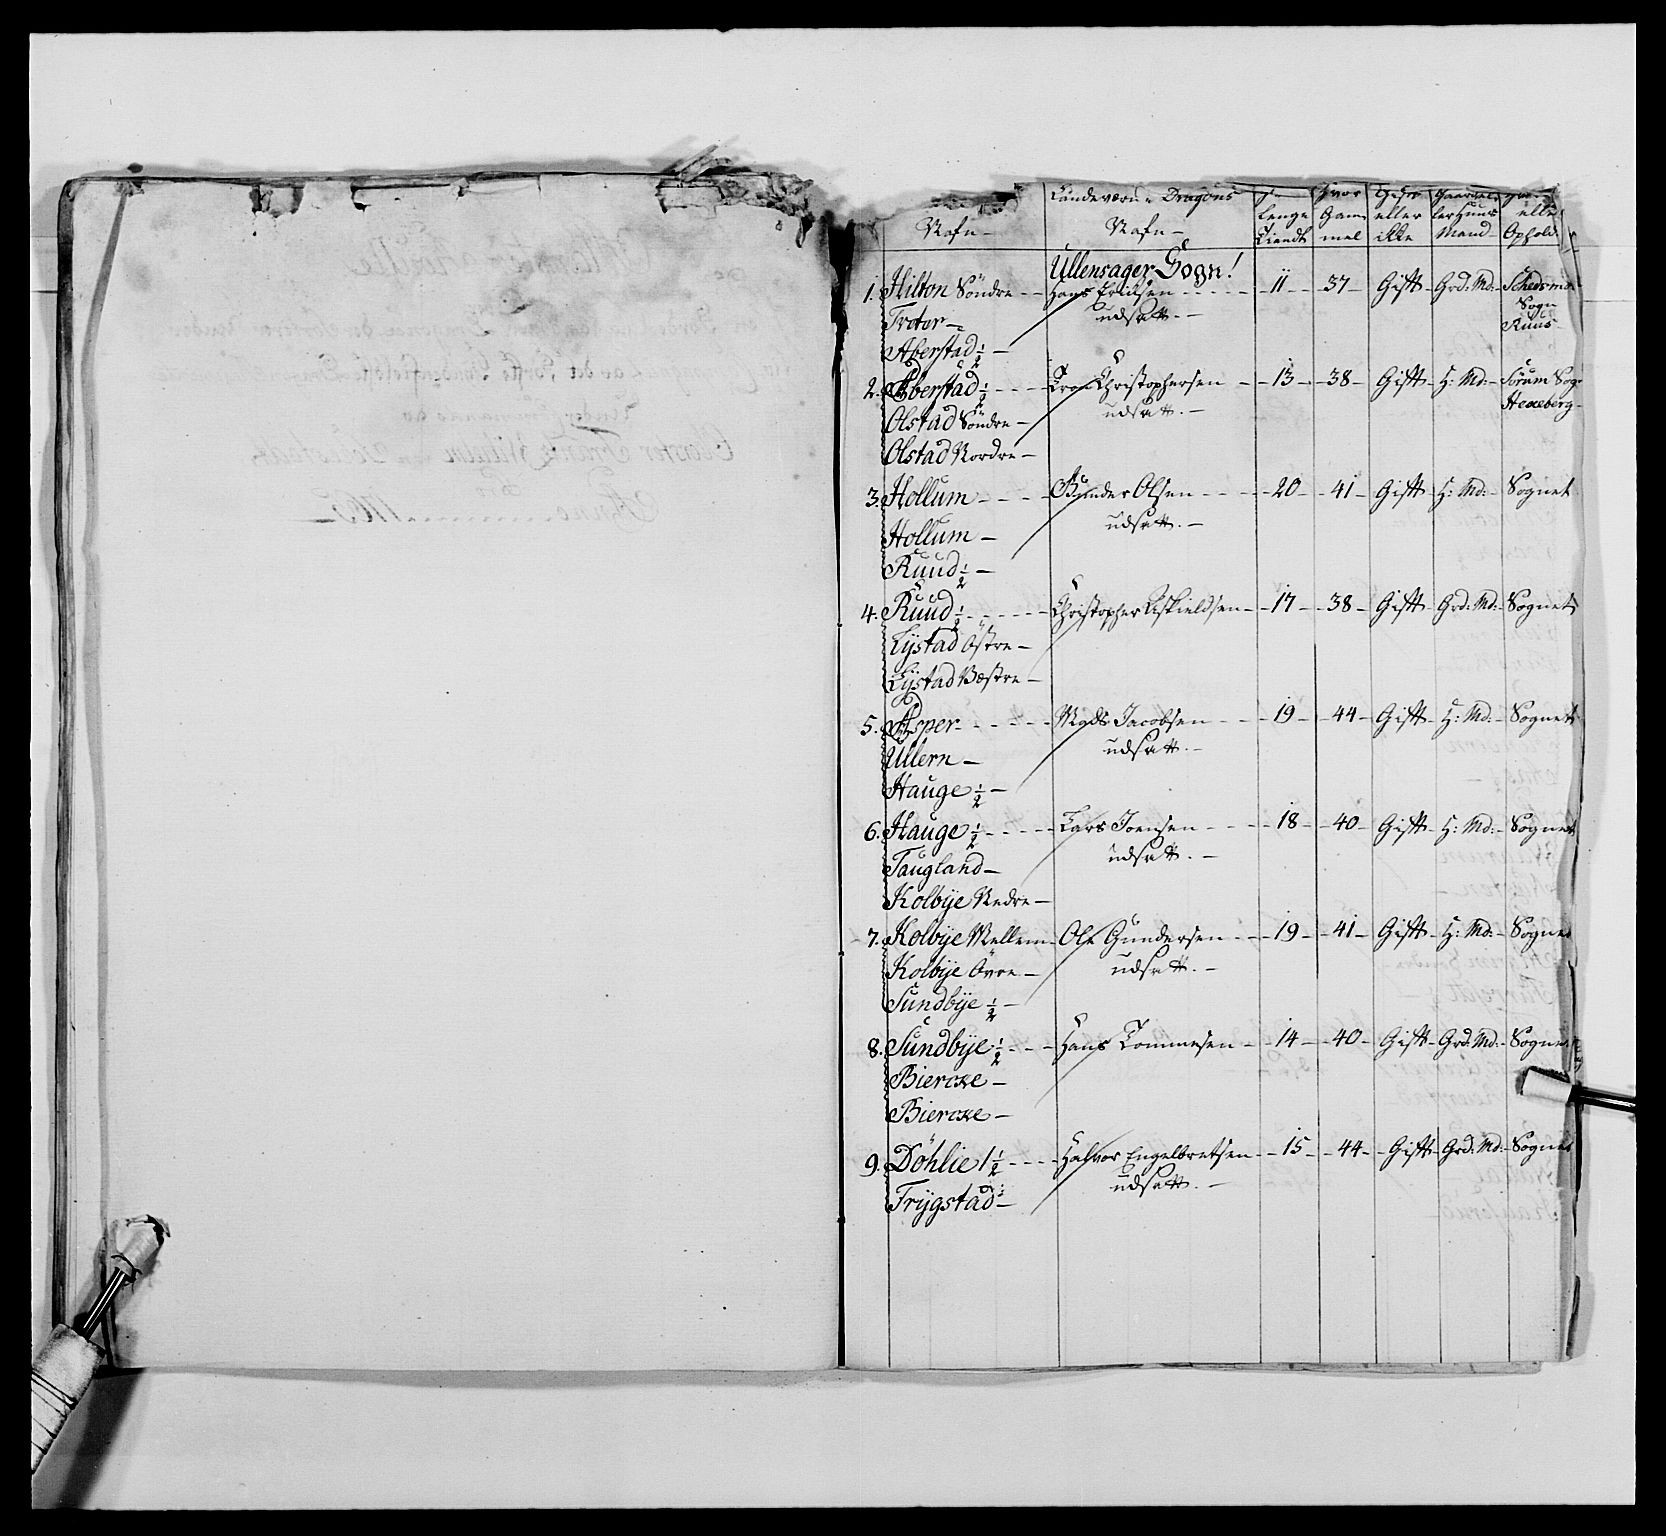 Landeværn Dragons
Nafn – Nafn – Lenge Tiendt Hvor Gammel Gift eller ikke Gaard eller Huus Mand Ophold
Ullensager Sogn!
1. Hilton Söndre – Hans Ericksen – 11 – 37 – Gift – Grd: Md: – Schedsmo
Sogn
Trøter – udsatt. – Ruus
Aberstad ½ –
2. Aberstad ½ – Christophersen – 13 – 38 – Gift – H: Md: – Sörum Sogn
Olstad Söndre – udsatt. – Hexeberg
Olstad Nordre –
3. Hollum – Gunder Olsen – 20 – 41 – Gift – H: Md: – Sognet
Hollum – udsatt. –
Ruud ½ –
4. Ruud ½ – Christopher Eskieldsen – 17 – 38 – Gift – Grd: Md: – Sognet
Lÿstad Östre –
Lÿstad Vestre –
5. Asper – Mads Jacobsen – 19 – 44 – Gift – H: Md: – Sognet
Ullern – udsatt. –
Hauge ½ –
6. Hauge ½ – Lars Joensen – 18 – 40 – Gift – H: Md: – Sognet
Taugland – udsatt. –
Kolbÿe Nedre –
7. Kolbÿe Mellem – Ole Gundersen – 19 – 41 – Gift – H: Md: – Sognet
Kolbÿe Övre – udsatt. –
Sundbÿe ½ –
8. Sundbÿe ½ – Hans Tommesen – 14 – 40 – Gift – Grd: Md: – Sognet
Biercke –
Biercke –
9. Döhlie 1½ – Halvor Engelbretsen – 15 – 44 – Gift – Grd: Md: – Sognet
Trÿgstad – udsatt. –